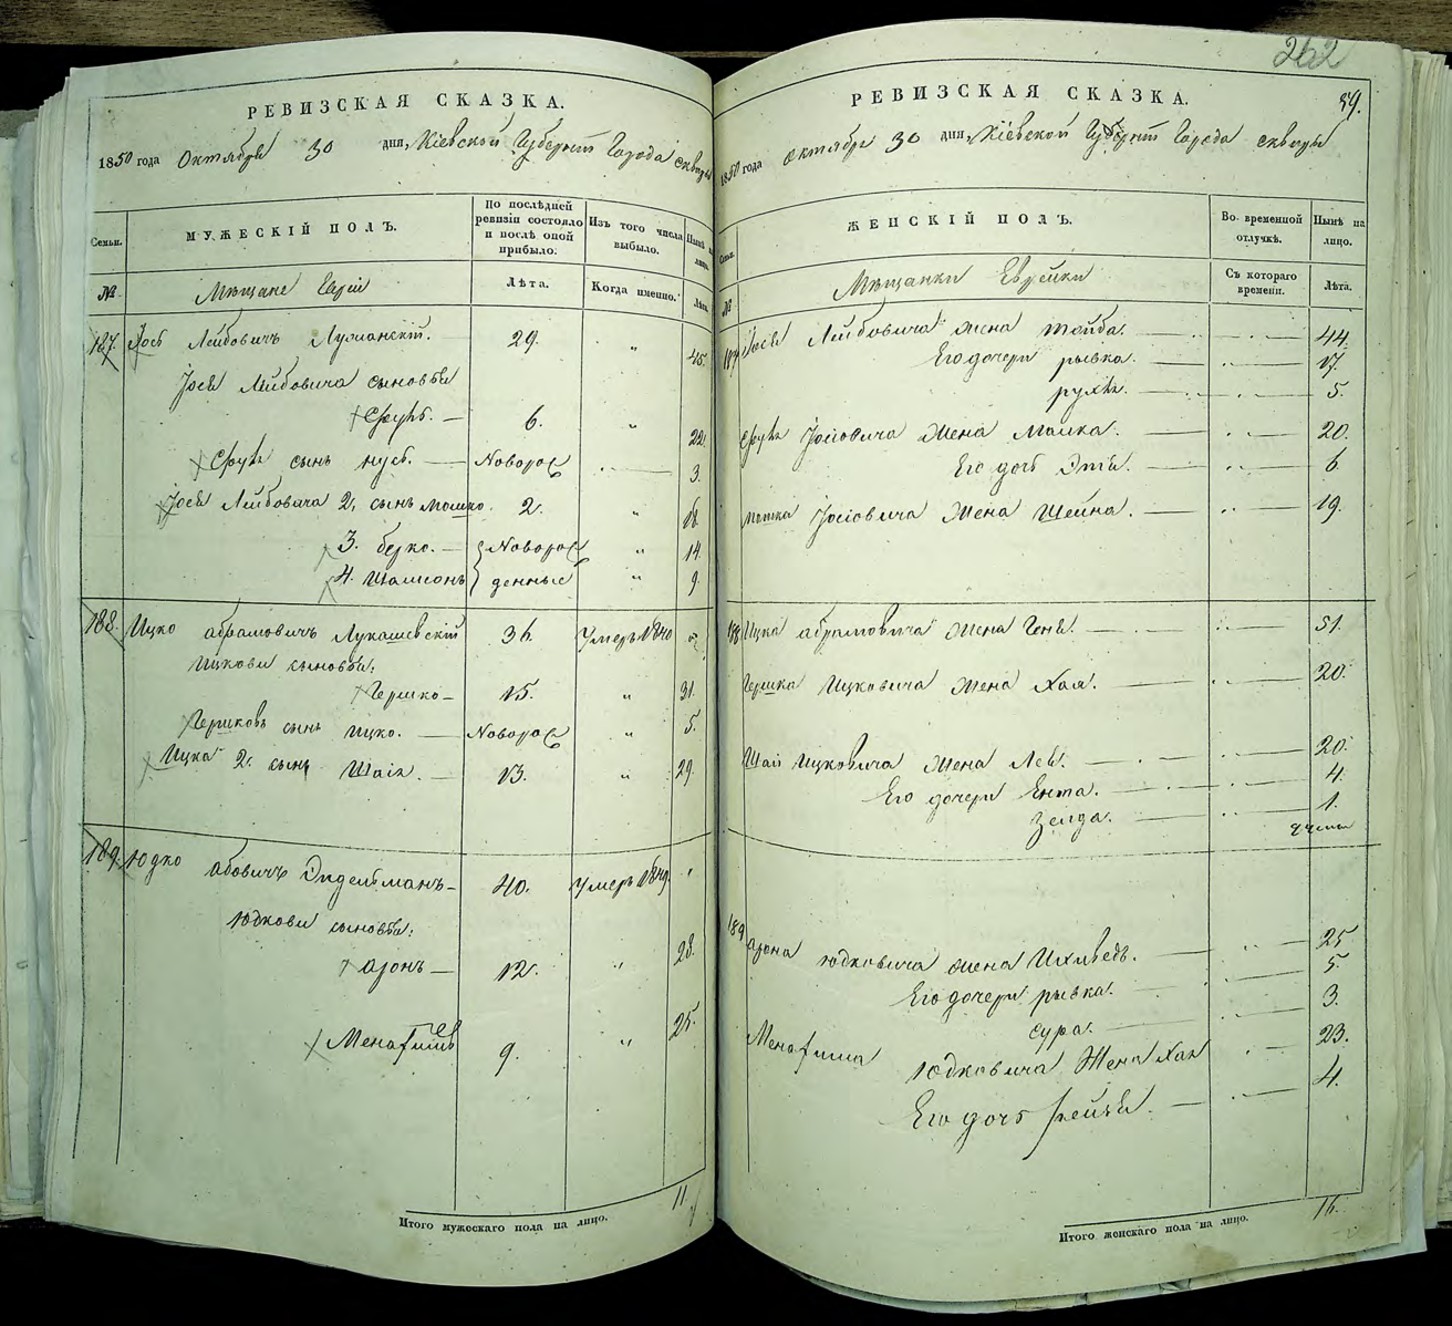 РЕВИЗСКАЯ СКАЗКА.
1850 года Октября 30 дня, Кіевской Губерніи Города Сквиры
Семьи.
МУЖЕСКІЙ ПОЛЪ.
По послѣдней ревизіи состояло и послѣ оной прибыло.
Изъ того числа выбыло.
Нынѣ на лицо.
№
Мѣщане Евреи
Лѣта.
Когда именно.
Лѣта.
187. Іось Лейбовичъ 29. „ 45.
Іося Лейбовича сыновья
Сруль. — 6. „ 22.
Сруля сынъ Нусь. — Новорож 3.
Іося Лейбовича 2, сынъ Мошко. 2. „ 18.
3. Берко. — Новорож „ 14.
4. Шамсонъ денные „ 9.
188. Ицко Абрамовичъ Лукашевскій 36. Умеръ 1840 „
Ицкови сыновья:
Гершко — 15. „ 31.
Гершковъ сынъ Ицко. — Новорож „ 5.
Ицка 2. сынъ Шаія. — 13. „ 29.
189. Юдко Абовичъ Эндельманъ — 40. Умеръ „
Юдкови сыновья:
Аронъ — 12. „ 28.
Менашев 9. „ 25.
Итого мужескаго пола на лицо. 11.
262
РЕВИЗСКАЯ СКАЗКА.
59.
1850 года Октября 30 дня, Кіевской Губерніи Города Сквиры
Семьи.
ЖЕНСКІЙ ПОЛЪ.
Во временной отлучкѣ.
Нынѣ на лицо.
№
Мѣщанки Еврейки
Съ котораго времени.
Лѣта.
187 Іося Лейбовича жена Тойба. — 44.
Его дочери Рывка. — 17.
Рухля. — 5.
Сруля Іосіовича Жена Малка. — 20.
Его дочь Этя. — 6
Мошка Іосіовича Жена Шейна. — 19.
188 Ицка Абрамовича Жена Геня. — 51.
Гершка Ицковича Жена Хая. — 20.
Шаіи Ицковича Жена Лея. — 20.
Его дочери Ента. — 4.
Зелда. — 1.
189 Арона Юдковича Жена — 25
Его дочери Рывка. — 5.
Сура. — 3.
Менаши Юдковича Жена Хая 23.
Его дочь Фейга. — 4.
Итого женскаго пола на лицо. 16.